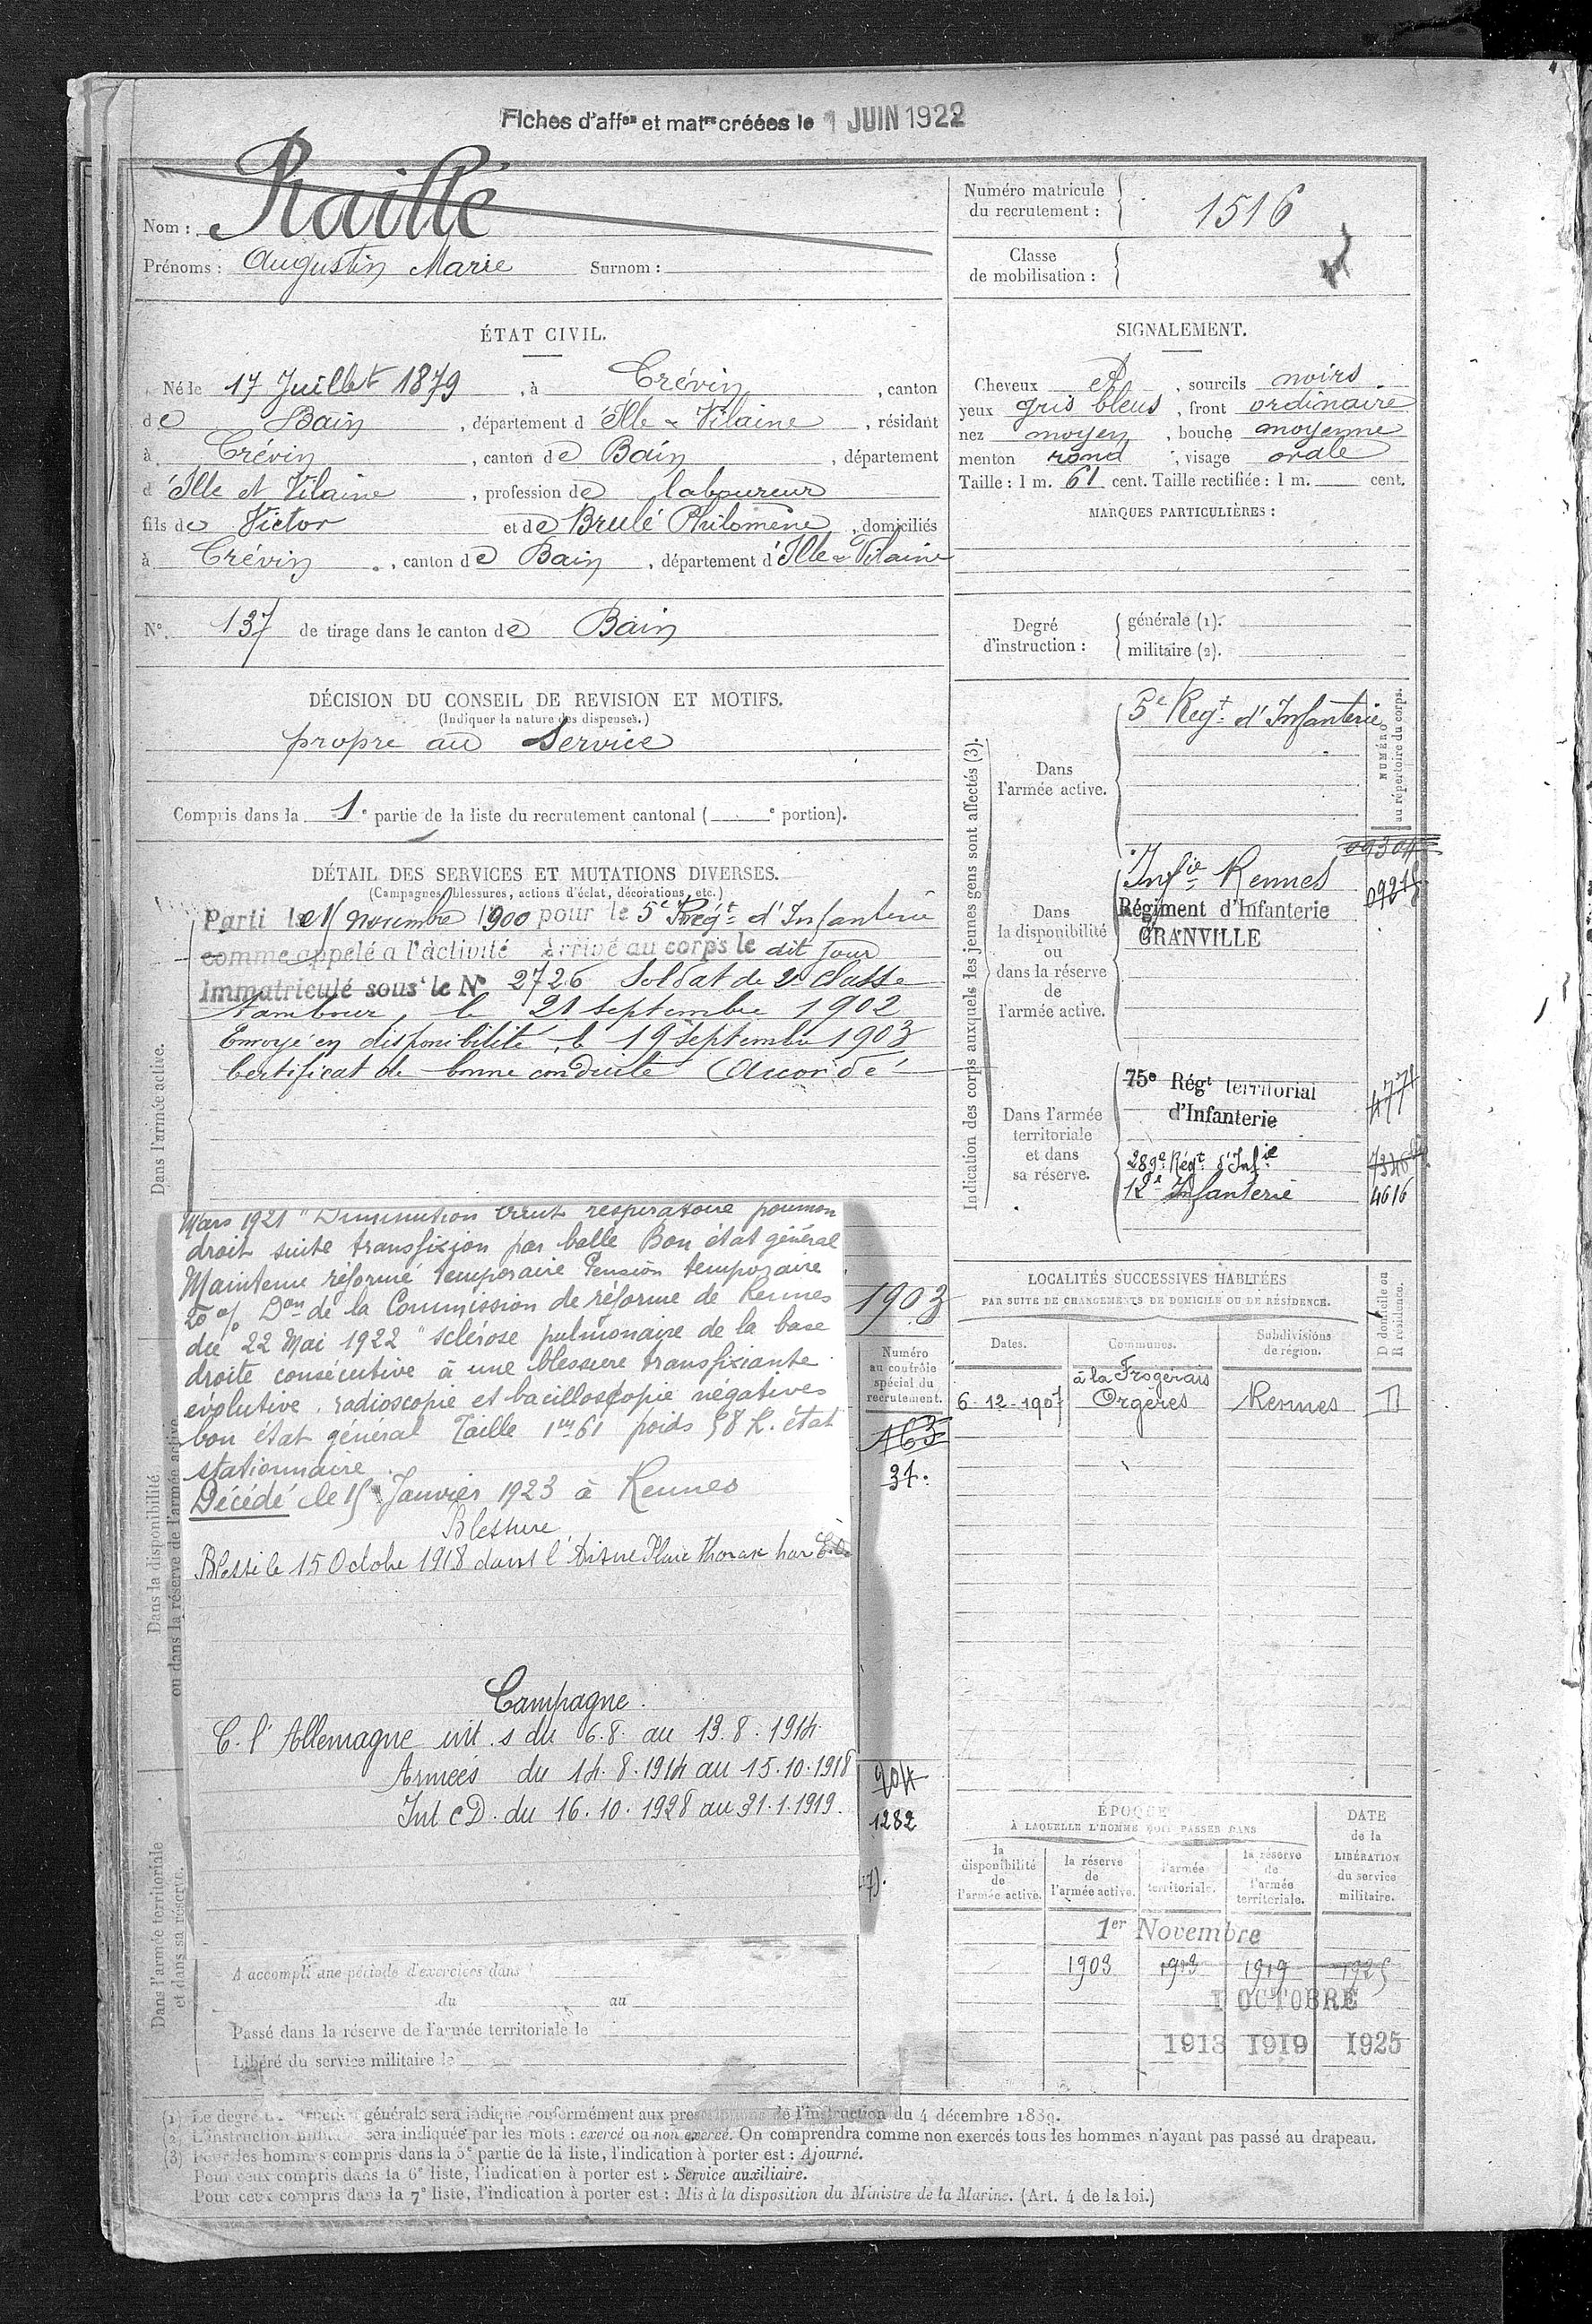 Fiches d'affon et matres créées le 1 JUIN 1922
Nom : Raillé
Prénoms : Augustin Marie Surnom :
Numéro matricule du recrutement : 1516
Classe de mobilisation :
ÉTAT CIVIL.
Né le 17 Juillet 1879, à Crévin, canton
de Bain, département d'Ille & Vilaine, résidant
à Crévin, canton de Bain, département
d'Ille et Vilaine, profession de laboureur
fils de Victor et de Brulé Philomène, domiciliés
à Crévin, canton de Bain, département d'Ille & Vilaine
N°. 137 de tirage dans le canton de Bain
SIGNALEMENT.
Cheveux et, sourcils noirs
yeux gris bleus, front ordinaire
nez moyen, bouche moyenne
menton rond, visage ovale
Taille : 1 m. 61 cent. Taille rectifiée : 1 m. cent.
MARQUES PARTICULIÈRES :
Degré d'instruction :
générale (1).
militaire (2).
DÉCISION DU CONSEIL DE REVISION ET MOTIFS.
(Indiquer la nature des dispenses.)
propre au Service
Compris dans la 1e partie de la liste du recrutement cantonal ( e portion).
DÉTAIL DES SERVICES ET MUTATIONS DIVERSES.
(Campagnes, blessures, actions d'éclat, décorations, etc.)
Dans l'armée active.
Parti le 15 novembre 1900 pour le 5e Régt d'Infanterie
comme appelé à l'activité Arrivé au corps le dit jour
Immatriculé sous le N° 2726 Soldat de 2e classe
Tambour, le 21 septembre 1902
Envoyé en disponibilité, le 19 septembre 1903
Certificat de bonne conduite Accordé
Mars 1921 "Diminution bruit respiratoire poumon
droit suite transfixion par balle Bon état général
Maintenu réformé temporaire Pension temporaire
20 % Don de la Commission de réforme de Rennes
du 22 Mai 1922 "sclérose pulmonaire de la base
droite consécutive à une blessure transfixiante
évolutive, radioscopie et bacilloscopie négatives
bon état général Taille 1m61 poids 58 K. état
stationnaire
Décédé le 15 Janvier 1923 à Rennes
Blessure
Blessé le 15 Octobre 1918 dans l'Aisne Plaie thorax par E.O.
Campagne.
C. l'Allemagne int. s du 6.8. au 13.8.1914.
Armées du 14.8.1914 au 15.10.1918
Int c D. du 16.10.1928 au 31.1.1919.
Dans la disponibilité
ou dans la réserve de l'armée active
Dans l'armée territoriale
et dans sa réserve.
1903
Numéro
au contrôle
spécial du
recrutement.
163
31.
204
1282
A accompli une période d'exercices dans
du au
Passé dans la réserve de l'armée territoriale le
Libéré du service militaire le
Indication des corps auxquels les jeunes gens sont affectés (3).
NUMÉRO
au répertoire du corps.
Dans
l'armée active.
5e Regt d'Infanterie
Dans
la disponibilité
ou
dans la réserve
de
l'armée active.
Infie Rennes
Régiment d'Infanterie
GRANVILLE
09304
Dans l'armée
territoriale
et dans
sa réserve.
75e Régt territorial
d'Infanterie
289e Régt d'Infie
12e Infanterie
4616
LOCALITÉS SUCCESSIVES HABITÉES
PAR SUITE DE CHANGEMENTS DE DOMICILE OU DE RÉSIDENCE.
Dates. Communes. Subdivisions de région. D domicile ou R résidence.
6-12-1907 à la Frogerais Orgères Rennes D
ÉPOQUE
À LAQUELLE L'HOMME DOIT PASSER DANS
la disponibilité de l'armée active.
la réserve de l'armée active.
l'armée territoriale.
la réserve de l'armée territoriale.
DATE de la LIBÉRATION du service militaire.
1er Novembre
1903 1913 1919 1925
1 OCTOBRE
1913 1919 1925
(1) Le degré d'instruction générale sera indiqué conformément aux prescriptions de l'instruction du 4 décembre 1889.
(2) L'instruction militaire sera indiquée par les mots : exercé ou non exercé. On comprendra comme non exercés tous les hommes n'ayant pas passé au drapeau.
(3) Pour les hommes compris dans la 5e partie de la liste, l'indication à porter est : Ajourné.
Pour ceux compris dans la 6e liste, l'indication à porter est : Service auxiliaire.
Pour ceux compris dans la 7e liste, l'indication à porter est : Mis à la disposition du Ministre de la Marine. (Art. 4 de la loi.)